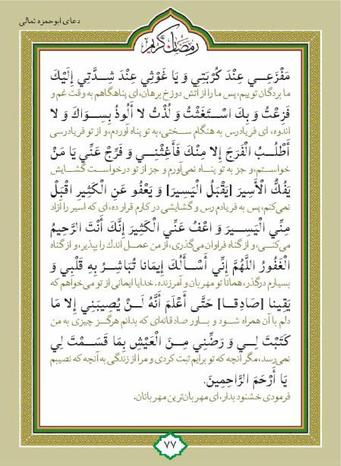 دعای ابوحمزه ثمالی
رمضان کریم
مَفْزَعِي عِنْدَ كُرْبَتِي وَ يَا غَوْثِي عِنْدَ شِدَّتِي إِلَيْكَ
ما بردگان توییم، پس ما را از آتش دوزخ برهان، ای پناهگاهم به وقت غم و
فَزِعْتُ وَ بِكَ اسْتَغَثْتُ وَ لُذْتُ لا أَلُوذُ بِسِوَاكَ وَ لا
اندوه، ای فریادرس به هنگام سختی، به تو پناه آوردم، و از تو فریادرسی
أَطْلُبُ الْفَرَجَ إِلا مِنْكَ فَأَغِثْنِي وَ فَرِّجْ عَنِّي يَا مَنْ
خواستم، و جز به تو پناه نمی‌آورم و جز از تو درخواست گشایش
يَفُكُّ الْأَسِيرَ [يَقْبَلُ الْيَسِيرَ] وَ يَعْفُو عَنِ الْكَثِيرِ اقْبَلْ
نمی‌کنم، پس به فریادم رس و گشایشی در کارم قرار ده، ای که اسیر را آزاد
مِنِّي الْيَسِيرَ وَ اعْفُ عَنِّي الْكَثِيرَ إِنَّكَ أَنْتَ الرَّحِيمُ
می‌کنی، و از گناه فراوان می‌گذری، از من عمل اندک را بپذیر، و از گناه
الْغَفُورُ اللَّهُمَّ إِنِّي أَسْأَلُكَ إِيمَانا تُبَاشِرُ بِهِ قَلْبِي وَ
بسیارم درگذر، همانا تو مهربان و آمرزنده. خدایا ایمانی از تو می‌خواهم که
يَقِينا [صَادِقا] حَتَّى أَعْلَمَ أَنَّهُ لَنْ يُصِيبَنِي إِلا مَا
دلم با آن همراه شود و باور صادقانه‌ای که بدانم هرگز چیزی به من
كَتَبْتَ لِي وَ رَضِّنِي مِنَ الْعَيْشِ بِمَا قَسَمْتَ لِي
نمی‌رسد، مگر آنچه که تو برایم ثبت کردی و مرا از زندگی به آنچه که نصیبم
يَا أَرْحَمَ الرَّاحِمِينَ.
فرمودی خشنود بدار، ای مهربان‌ترین مهربانان.
۷۷